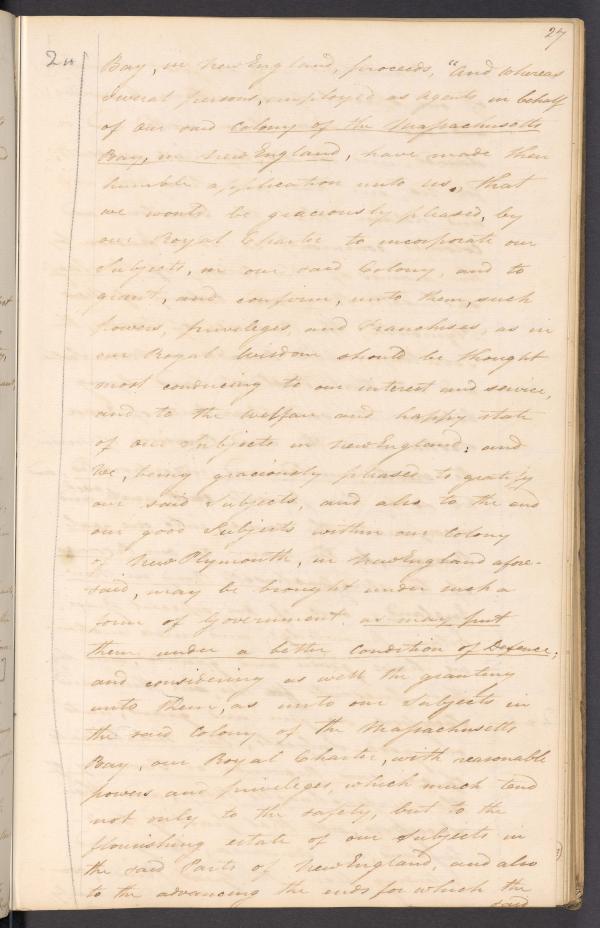 27
2"
Bay, in New England, proceeds, "And whereas
several persons, employed as Agents in behalf
of our said Colony of the Massachusetts
Bay, in New England, have made their
humble application unto us, that
we would be graciously pleased, by
our Royal Charter to incorporate our
Subjects, in our said Colony, and to
grant, and confirm, unto them, such
powers, privileges, and Franchises, as in
our Royal Wisdom should be thought
most conducing to our interest and service,
and to the welfare and happy state
of our Subjects in New England; and
We, being graciously pleased to gratify
our said Subjects, and also to the end
our good Subjects within our Colony
of New Plymouth, in New England afore-
said, may be brought under such a
form of Government as may put
them under a better Condition of Defence;
and considering as well the granting
unto them, as unto our Subjects in
the said Colony of the Massachusetts
Bay, our Royal Charter, with reasonable
powers and privileges, which much tend
not only to the safety, but to the
flourishing estate of our Subjects in
the said Parts of New England, and also
to the advancing the ends for which the
said